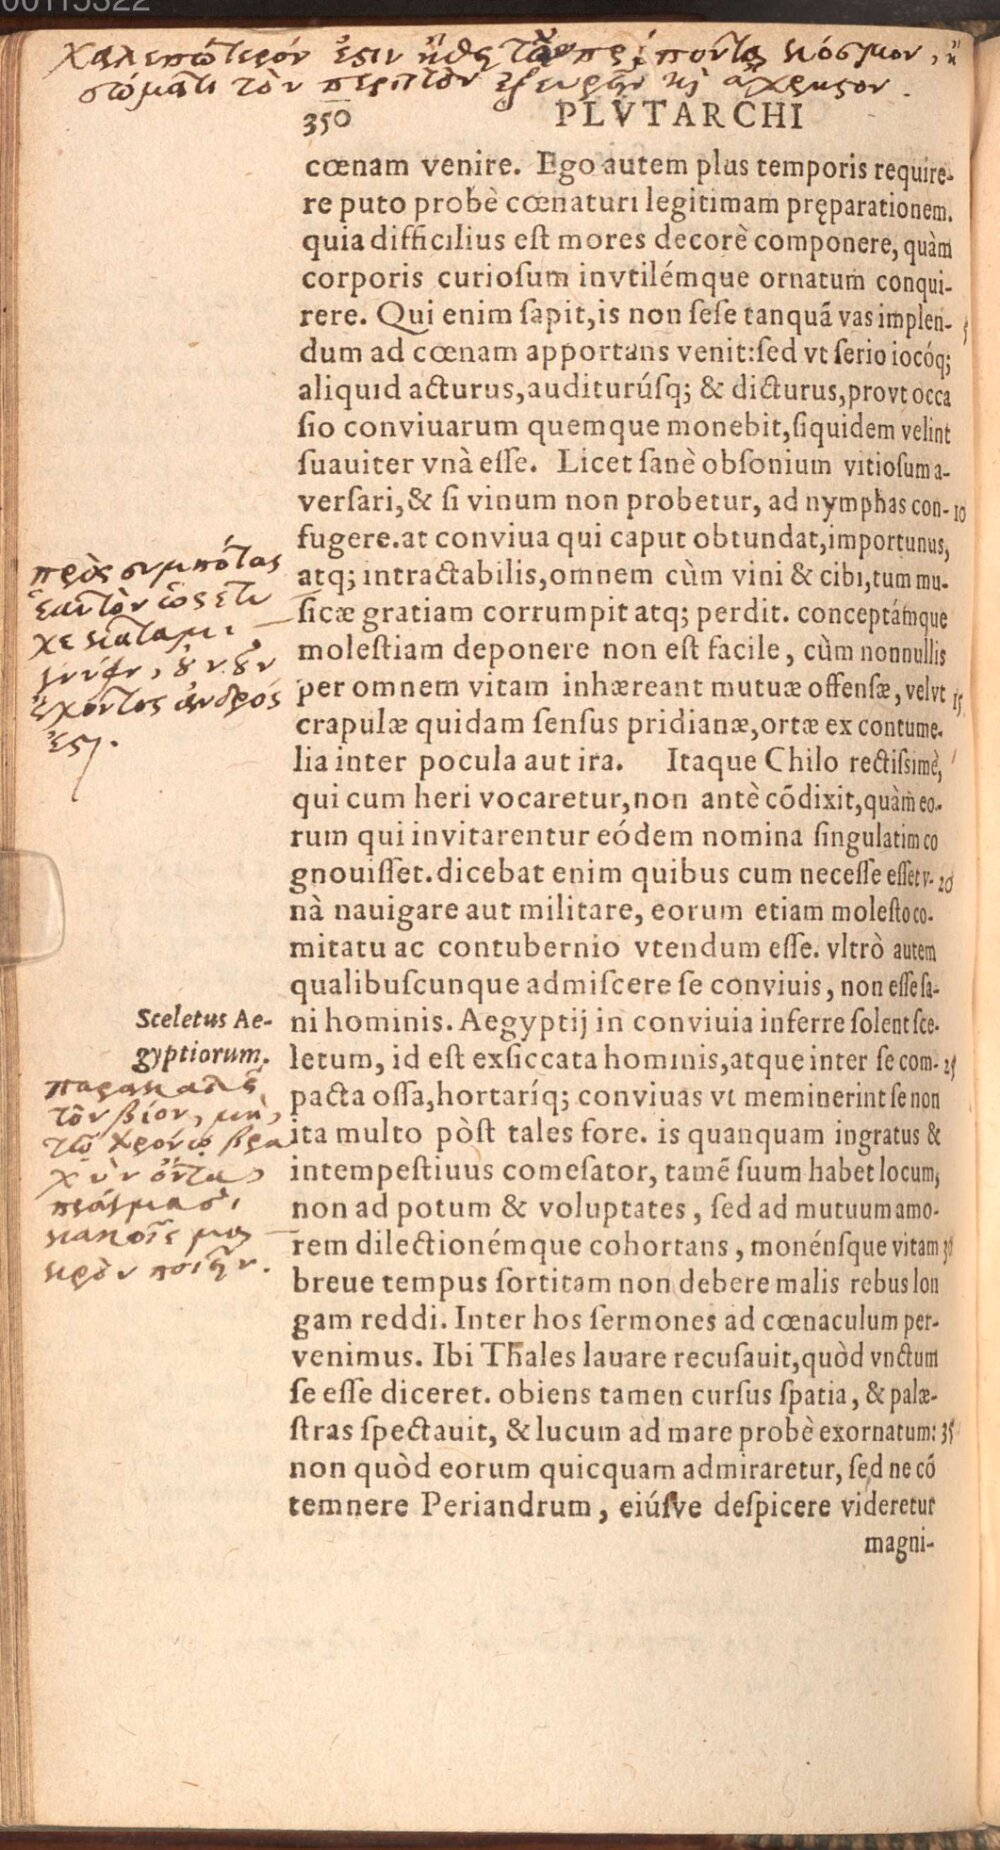 00115322
χαλεπώτερόν ἐστιν ἤθει τὸν πρέποντα κόσμον, ἢ
σώματι τὸν περιττὸν ἐξευρεῖν καὶ ἄχρηστον.
350 PLVTARCHI
cœnam venire. Ego autem plus temporis require-
re puto probè cœnaturi legitimam pręparationem.
quia difficilius eſt mores decorè componere, quàm
corporis curioſum invtilémque ornatum conqui-
rere. Qui enim ſapit, is non ſeſe tanquã vas implen- 5
dum ad cœnam apportans venit: ſed vt ſerio iocóq;
aliquid acturus, auditurúſq; & dicturus, provt occa
ſio conviuarum quemque monebit, ſiquidem velint
ſuauiter vnà eſſe. Licet ſanè obſonium vitioſum a-
verſari, & ſi vinum non probetur, ad nymphas con- 10
fugere. at conviua qui caput obtundat, importunus,
atq; intractabilis, omnem cùm vini & cibi, tum mu-
ſicæ gratiam corrumpit atq; perdit. conceptámque
moleſtiam deponere non eſt facile, cùm nonnullis
per omnem vitam inhæreant mutuæ offenſæ, velvt 15
crapulæ quidam ſenſus pridianæ, ortæ ex contume-
lia inter pocula aut ira. Itaque Chilo rectiſſimè,
qui cum heri vocaretur, non antè cõdixit, quàm eo-
rum qui invitarentur eódem nomina ſingulatim co
gnouiſſet. dicebat enim quibus cum neceſſe eſſet v- 20
nà nauigare aut militare, eorum etiam moleſto co-
mitatu ac contubernio vtendum eſſe. vltrò autem
qualibuſcunque admiſcere ſe conviuis, non eſſe ſa-
ni hominis. Aegyptij in conviuia inferre ſolent ſce-
letum, id eſt exſiccata hominis, atque inter ſe com- 25
pacta oſſa, hortaríq; conviuas vt meminerint ſe non
ita multo pòſt tales fore. is quanquam ingratus &
intempeſtiuus comeſator, tamẽ ſuum habet locum,
non ad potum & voluptates, ſed ad mutuum amo-
rem dilectionémque cohortans, monénſque vitam 30
breue tempus ſortitam non debere malis rebus lon
gam reddi. Inter hos ſermones ad cœnaculum per-
venimus. Ibi Thales lauare recuſauit, quòd vnctum
ſe eſſe diceret. obiens tamen curſus ſpatia, & palæ-
ſtras ſpectauit, & lucum ad mare probè exornatum: 35
non quòd eorum quicquam admiraretur, ſed ne cõ
temnere Periandrum, eiúſve deſpicere videretur
magni-
πρὸς συμπότας
ἑαυτὸν ὡς ἔτυ
χε καταμι
γνύειν, οὐ νοῦν
ἔχοντος ἀνδρός
ἐστι.
Sceletus Ae-
gyptiorum.
παρακαλεῖ
τὸν βίον, μὴ
τῷ χρόνῳ βρα
χὺν ὄντα,
πράγμασι
κακοῖς μα
κρὸν ποιεῖν.